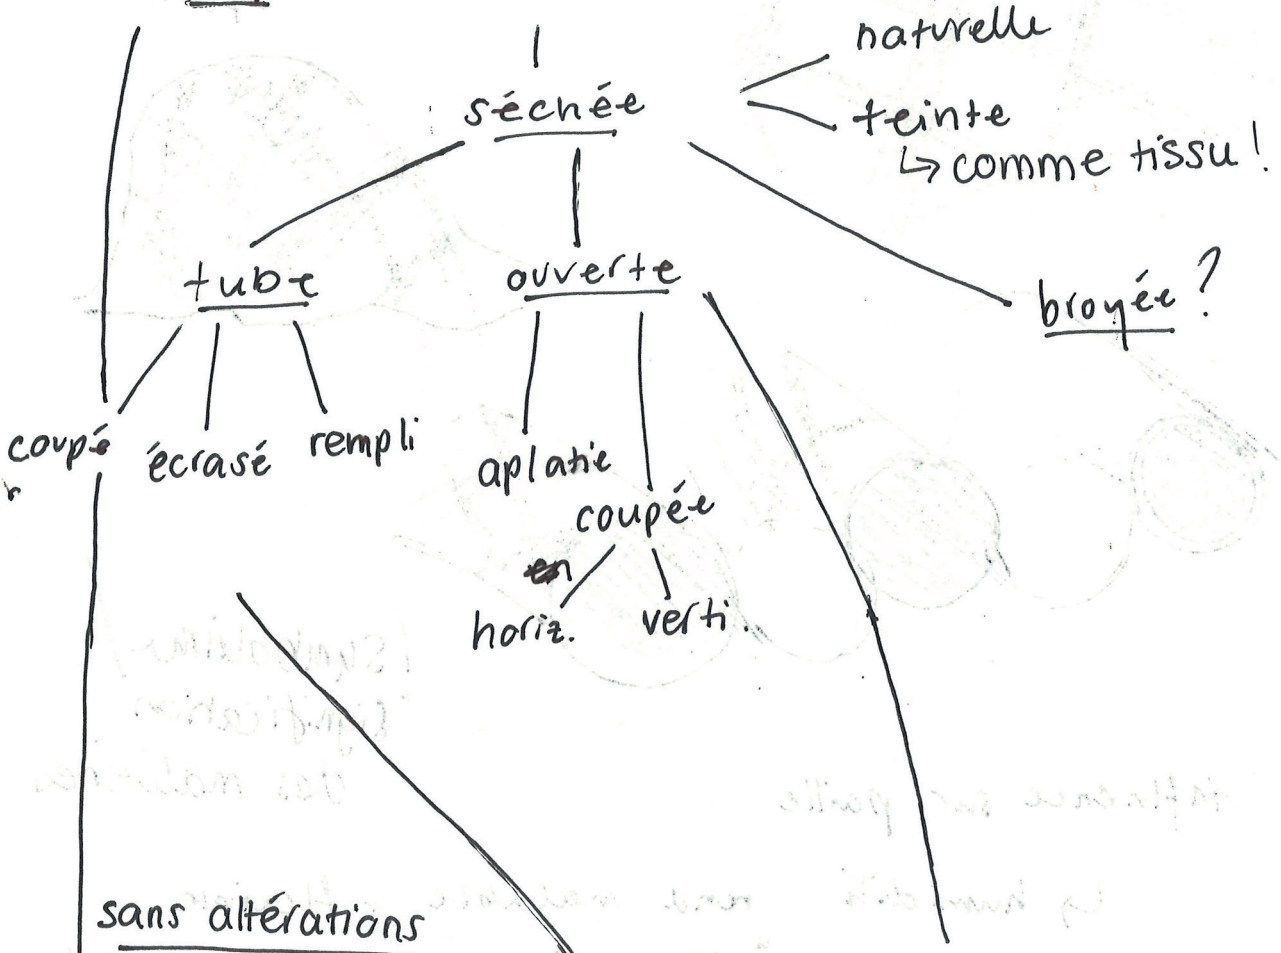 naturelle
séchée
teinte
↳ comme tissu !
tube
ouverte
broyée ?
coupé
écrasé
rempli
aplatie
coupée
horiz.
verti.
sans altérations